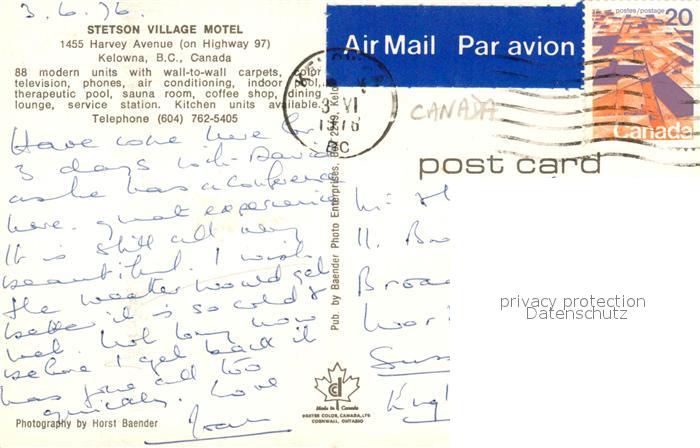 3.6.76.
STETSON VILLAGE MOTEL
1455 Harvey Avenue (on Highway 97)
Kelowna, B.C., Canada
88 modern units with wall-to-wall carpets, color
television, phones, air conditioning, indoor pool,
therapeutic pool, sauna room, coffee shop, dining
lounge, service station. Kitchen units available.
Telephone (604) 762-5405
Have come here for
3 days with David
as he has a conference
here. great experience
It is still all very
beautiful. I wish
the weather would get
better it is so cold &
wet. Not long now
before I get back it
has gone all too
quickly. Love
Joan
Photography by Horst Baender
Pub. by Baender Photo Enterprises, Box 249, Kelo
Made in Canada
DEXTER COLOR, CANADA, LTD
CORNWALL, ONTARIO
Air Mail Par avion
3 VI
1976
BC
CANADA
postes/postage
20
Canada
post card
11. Bro
Broad
Wor
Suss
Engl
privacy protection
Datenschutz